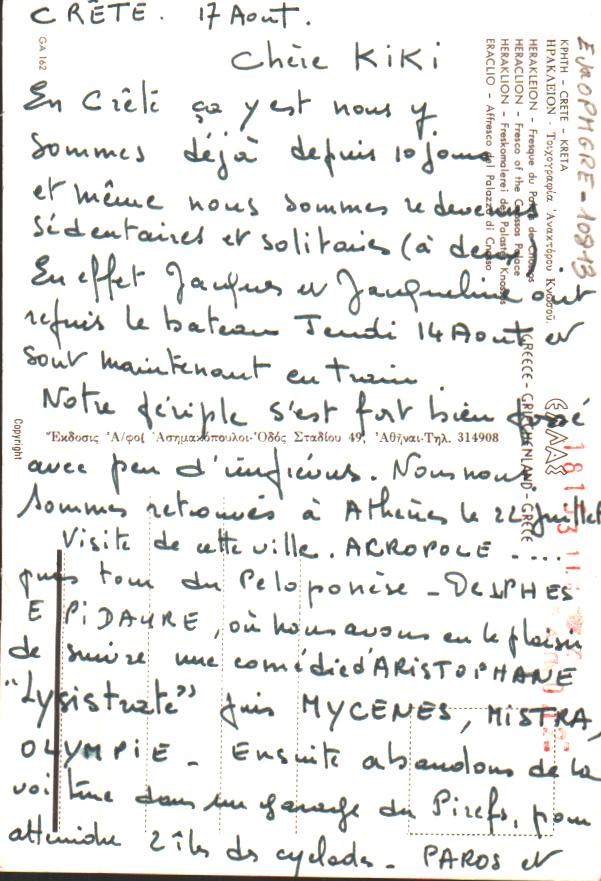 CRÊTE. 17 Aout.
Chère KiKi
En Crête ça y est nous y
sommes déjà depuis 10 jours
et même nous sommes redevenus
sédentaires et solitaires (à deux)
En effet Jacques et Jacqueline ont
repris le bateau Jeudi 14 Aout et
sont maintenant en train.
Notre périple s'est fort bien passé
avec peu d'
Nous nous
sommes retrouvés à Athènes le 22 Juillet
Visite de cette ville. ACROPOLE .....
puis tour du Peloponèse - DELPHES
EPIDAURE, où nous avons eu le plaisir
de suivre une comédie d'ARISTOPHANE
"Lysistrate" puis MYCENES, MISTRA,
OLYMPIE - Ensuite abandons de la
voiture dans un garage du Pirefs, pour
atteindre 2 îles des cyclades - PAROS et
GA 162
ΚΡΗΤΗ - CRETE - KRETA
ΗΡΑΚΛΕΙΟΝ - Τοιχογραφία Ἀνακτόρου Κνωσσοῦ.
HERAKLEION - Fresque du Palais de Cnossos
HERACLION - Fresco of the Cnossos Palace
HERAKLION - Freskomalerei des Palastes Knossos
ERACLIO - Affresco del Palazzo di Cnosso
GREECE - GRIECHENLAND - GRECE
ΕΛΛΑΣ
Ἔκδοσις Ἀ/φοί Ἀσημακόπουλοι-Ὁδός Σταδίου 49, Ἀθῆναι-Τηλ. 314908
Copyright